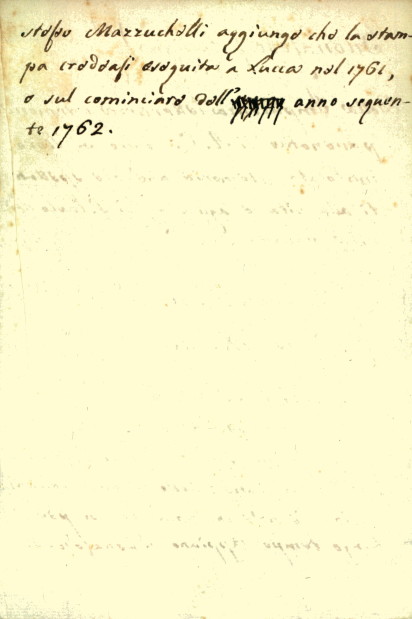 stesso Mazzuchelli aggiunge che la stam-
pa credesi eseguita a Lucca nel 1761,
o sul cominciare dell' anno seguen-
te 1762.